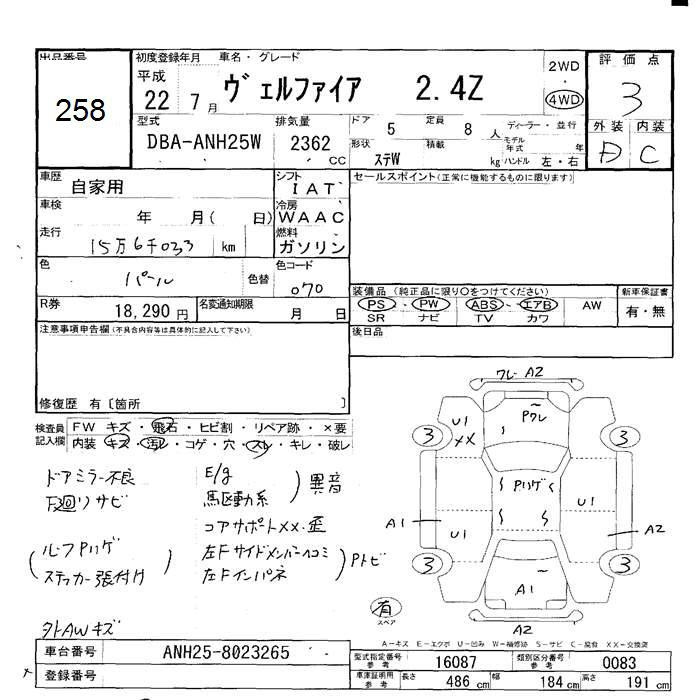 出品番号
258
初度登録年月
平成
22 7月
車名・グレード
ヴェルファイア 2.4Z
2WD
4WD
評価点
3
外装 内装
D C
型式
DBA-ANH25W
排気量
2362
CC
ドア 5
定員 8 人
形状
ステW
積載
kg
ディーラー・並行
モデル年式 年
ハンドル 左・右
車歴
自家用
シフト
IAT
セールスポイント(正常に機能するものに限ります)
車検
年 月( 日)
冷房
WAAC
走行
15万6千033 km
燃料
ガソリン
色
パール
色替
色コード
070
R券
18,290円
名変通知期限
月 日
装備品(純正品に限り○をつけてください)
PS・PW・ABS・エアB AW
SR ナビ TV カワ
新車保証書
有・無
後日品
注意事項申告欄(不具合内容等は具体的に記入して下さい)
修復歴 有〔箇所 〕
検査員記入欄
FW キズ・飛石・ヒビ割・リペア跡・×要
内装 キズ・汚レ・コゲ・穴・スレ・キレ・破レ
ドアミラー不良
下廻りサビ
E/g
馬区動系
異音
コアサポートXX・歪
ルーフPリゲ
ステッカー張付け
左Fサイドメンバーヘコミ
左Fインパネ
Pトビ
外AWキズ
ワレ A2
Pワレ
U1
XX
3
3
Pリゲ
A1
U1
U1
A2
3
3
A1
A2
有
スペア
A-キズ E-エクボ U-凹み W-補修跡 S-サビ C-腐食 XX-交換済
車台番号
ANH25-8023265
登録番号
型式指定番号
参考
16087
類別区分番号
参考
0083
車庫証明用
参考
長さ 486 cm
幅 184 cm
高さ 191 cm